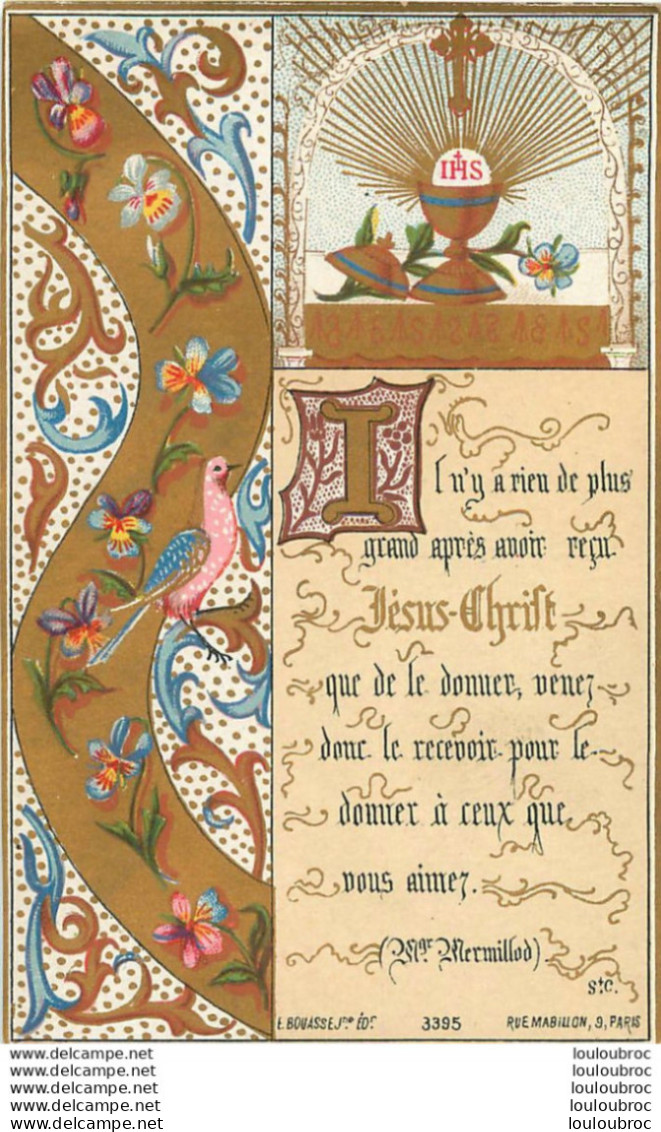 IHS
Il n'y a rien de plus
grand après avoir reçu
Jésus-Christ
que de le donner, venez
donc le recevoir pour le
donner à ceux que
vous aimez.
(Mgr Mermillod)
St C.
E. BOUASSE Jne ÉDr 3395 RUE MABILLON, 9, PARIS
www.delcampe.net louloubroc
www.delcampe.net louloubroc
www.delcampe.net louloubroc
www.delcampe.net louloubroc
www.delcampe.net louloubroc